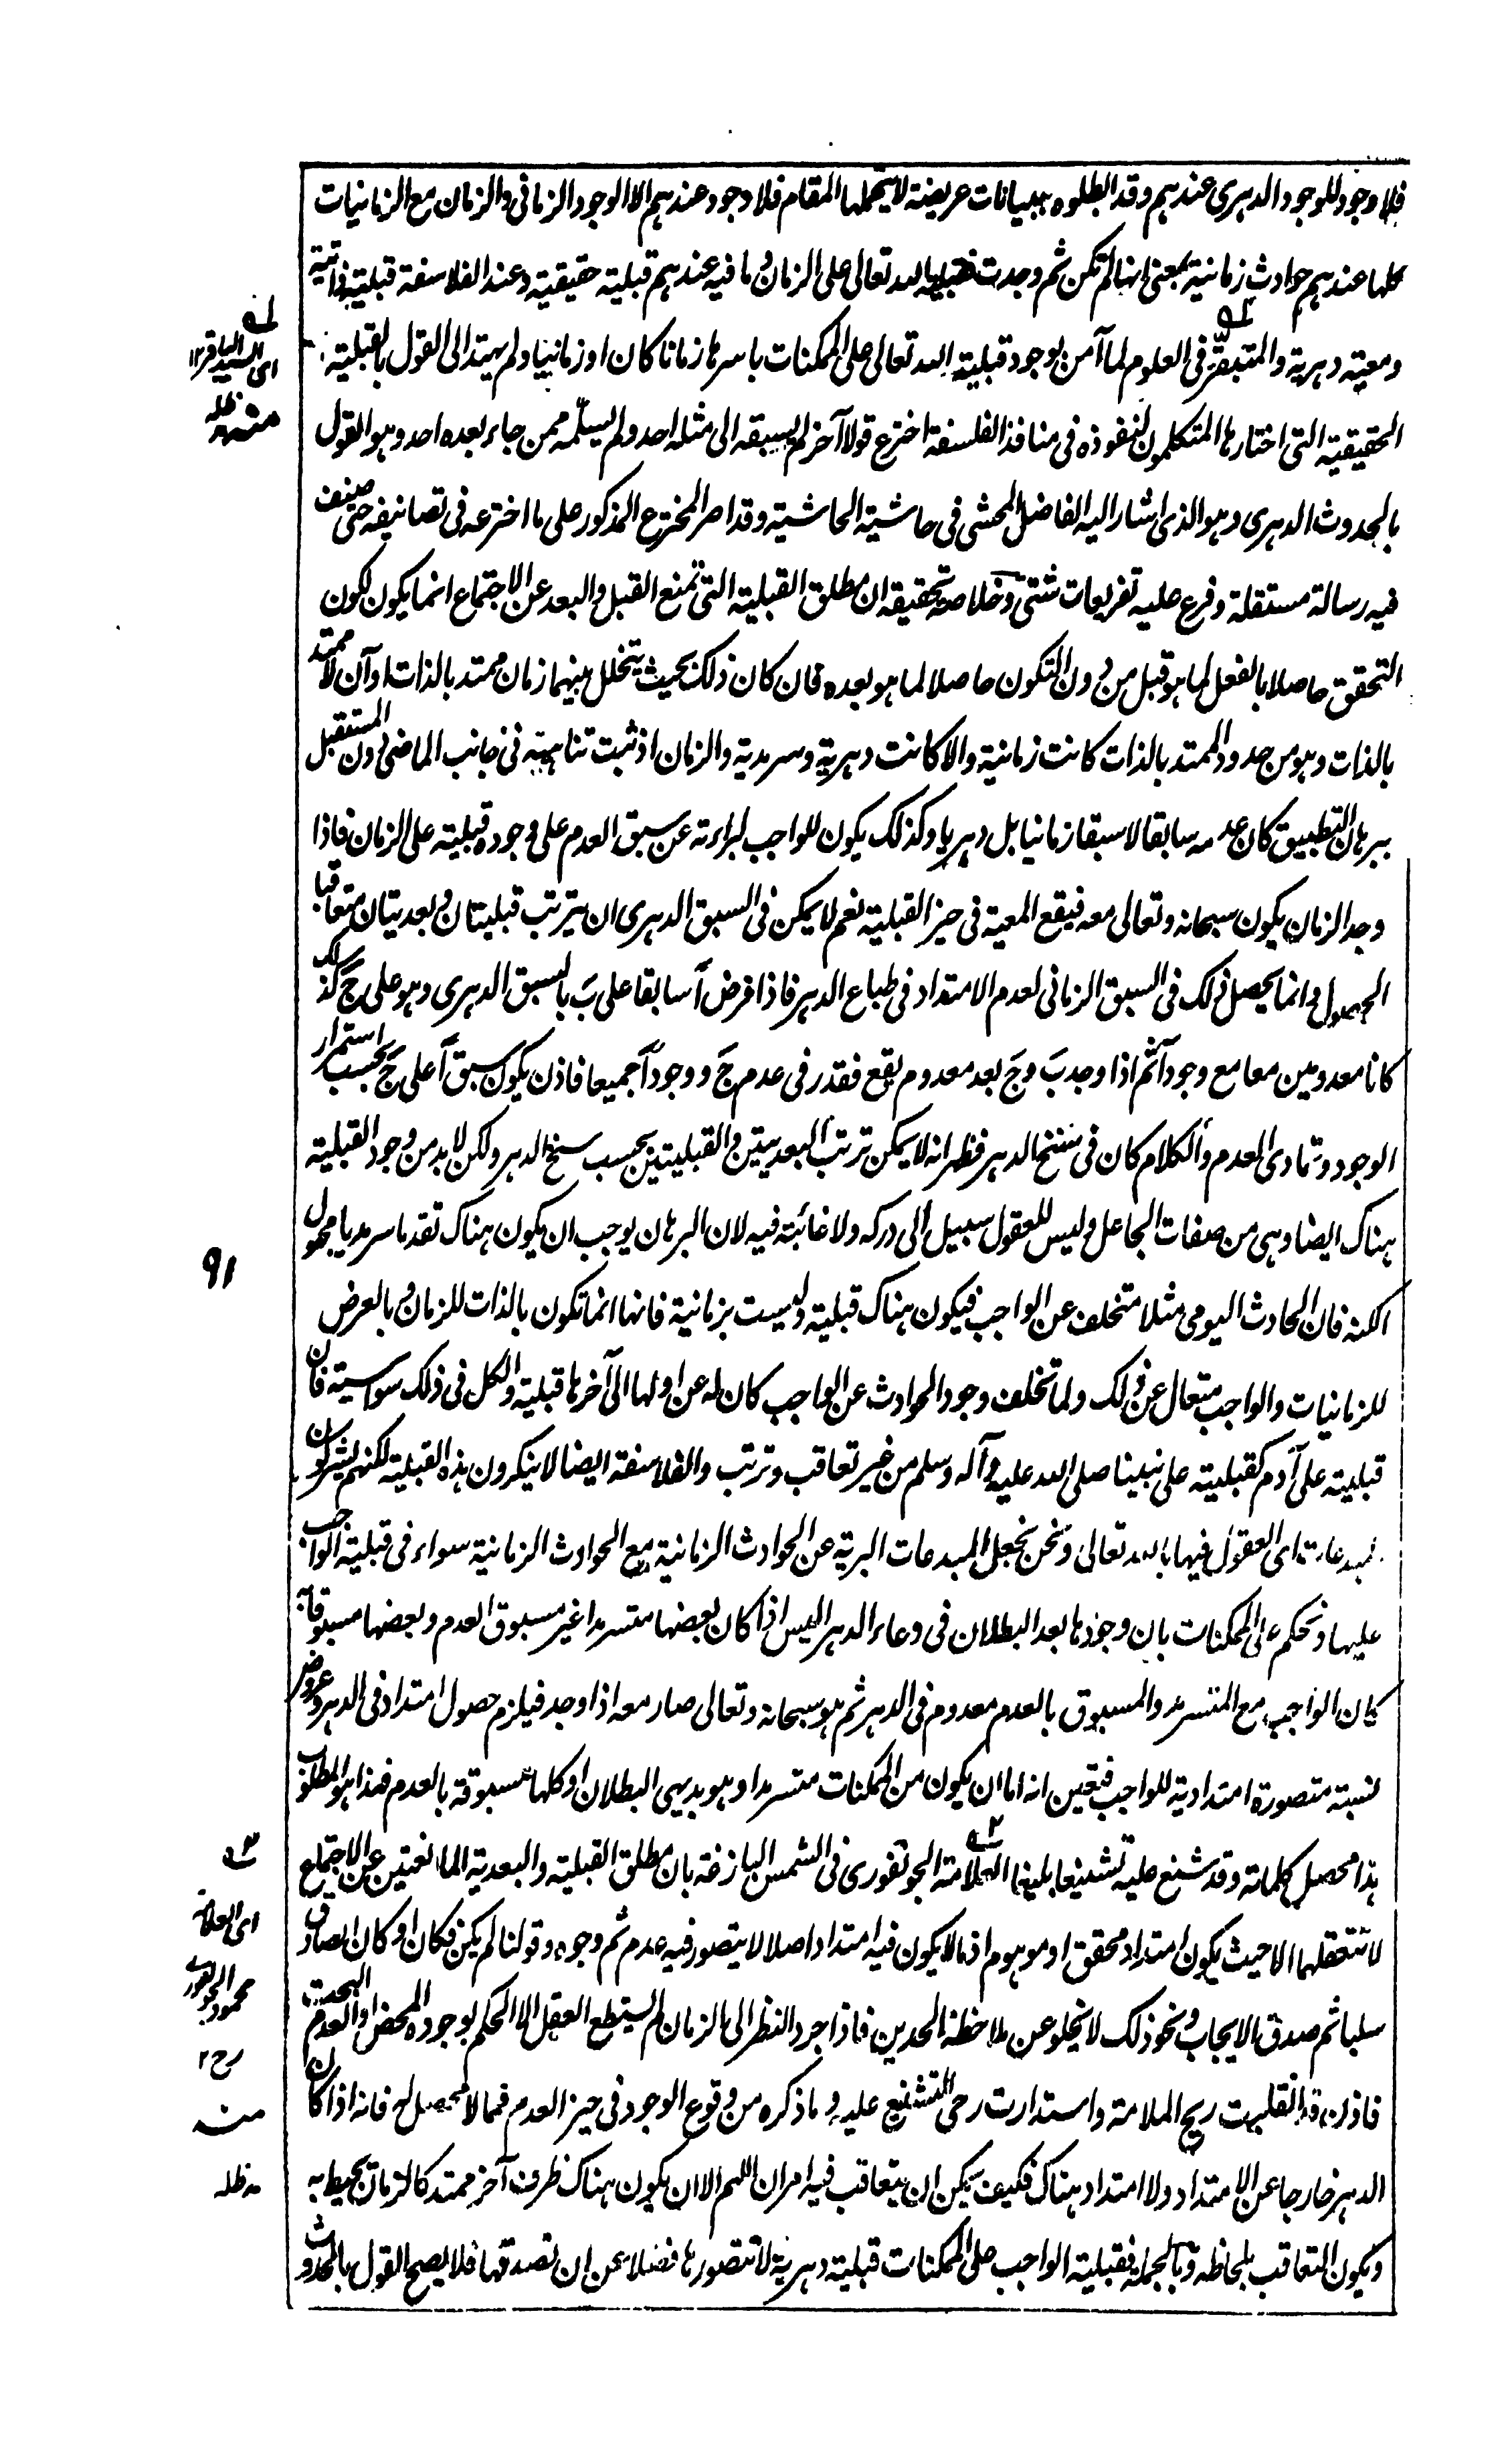 فلا وجود للوجود الدهرى عندهم وقد ابطلوه ببيانات عريضة لا يتحملها المقام فلا وجود عندهم الا الوجود الزمانى والزمان مع الزمانيات
كلها عندهم حوادث زمانية بمعنى انها لم تكن ثم وجدت فقبلية الله تعالى على الزمان وما فيه عندهم قبلية حقيقية وعند الفلاسفة قبلية ذاتية
ومعية دهرية والمتبقّر فى العلوم لما آمن بوجود قبلية الله تعالى على الممكنات باسرها زمانا كان او زمانيا ولم يهتد الى القول بالقبلية
الحقيقية التى اختارها المتكلمون لنفوذه فى منافذ الفلسفة اخترع قولا آخر لم يسبقه الى مثله احد ولم يسلّمه ممن جاء بعده احد وهو القول
بالحدوث الدهرى وهو الذى اشار اليه الفاضل المحشى فى حاشية الحاشية وقد اصر المخترع المذكور على ما اخترعه فى تصانيفه حتى صنف
فيه رسالة مستقلة وفرع عليه تفريعات شتى وخلاصة تحقيقه ان مطلق القبلية التى تمنع القبل والبعد عن الاجتماع انما يكون لكون
التحقق حاصلا بالفعل لما هو قبل من دون التكون حاصلا لما هو بعده فان كان ذلك بحيث يتخلل بينهما زمان ممتد بالذات او آن لا ممتد
بالذات وهو من حدود الممتد بالذات كانت زمانية والا كانت دهرية وسرمدية والزمان اذ ثبت تناهيه فى جانب الماضى دون المستقبل
ببرهان التطبيق كان عدمه سابقا لا سبقا زمانيا بل دهريا وكذلك يكون للواجب لبراءته عن سبق العدم على وجوده قبلية على الزمان فاذا
وجد الزمان يكون سبحانه وتعالى معه فيقع المعية فى حيز القبلية نعم لا يمكن فى السبق الدهرى ان يترتب قبليتان وبعديتان متعاقبا
الحصول وانما يحصل ذلك فى السبق الزمانى لعدم الامتداد فى طباع الدهر فاذا فرض آ سابقا على بَ بالسبق الدهرى وهو على جَ كذلك
كانا معدومين معا مع وجود آ ثم اذا وجد بَ وجَ بعد معدوم يقع فقدر فى عدم جَ ووجود آ جميعا فاذن يكون سبق آ على جَ بحسب استمرار
الوجود وتمادى العدم والكلام كان فى سنخ الدهر فظهر انه لا يمكن ترتب البعديتين والقبليتين بحسب سنخ الدهر ولكن لا بد من وجود القبلية
هناك ايضا وهى من صفات الجاعل وليس للعقول سبيل الى دركه ولا غائبة فيه لان البرهان يوجب ان يكون هناك تقدما سرمديا مجهول
الكنه فان الحادث اليومى مثلا متخلف عن الواجب فيكون هناك قبلية وليست بزمانية فانها انما تكون بالذات للزمان وبالعرض
للزمانيات والواجب متعال عن ذلك ولما تخلف وجود الحوادث عن الواجب كان له عن اولها الى آخرها قبلية والكل فى ذلك سواسية فان
قبلية على آدم كقبليته على نبينا صلى الله عليه وآله وسلم من غير تعاقب وترتب والفلاسفة ايضا لا ينكرون هذه القبلية لكنهم يشركون
المبدعات اى العقول فيها بالله تعالى ونحن نجعل المبدعات البرية عن الحوادث الزمانية مع الحوادث الزمانية سواء فى قبلية الواجب
عليها ونحكم على الممكنات بان وجودها بعد البطلان فى وعاء الدهر اليس اذا كان بعضها متسرمدا غير مسبوق العدم وبعضها مسبوقا به
كان الواجب مع المتسرمد والمسبوق بالعدم معدوم فى الدهر ثم هو سبحانه وتعالى صار معه اذا وجد فيلزم حصول امتداد فى الدهر وعروض
نسبة متصورة امتدادية للواجب فتعين انه اما ان يكون من الممكنات متسرمدا وهو بديهى البطلان او كلها مسبوقة بالعدم فهذا هو المطلوب
هذا محصل كلماته وقد شنع عليه تشنيعا بليغا العلامة الجونفورى فى الشمس البازغة بان مطلق القبلية والبعدية المانعتين عن الاجتماع
لا نتعقلهما الا حيث يكون امتداد محقق او موهوم اذ ما لا يكون فيه امتداد اصلا لا يتصور فيه عدم ثم وجود وقولنا لم يكن فكان او كان الصادق
سلبا ثم صدق الايجاب ونحو ذلك لا يخلو عن ملاحظة الحدين فاذا جرد النظر الى الزمان لم يستطع العقل الا الحكم بوجوده المحض او العدم البحت
فاذن قد انقلبت ريح الملامة واستدارت رحى التشنيع عليه وما ذكره من وقوع الوجود فى حيز العدم فمما لا محصل له فانه اذا كان
الدهر خارجا عن الامتداد ولا امتداد هناك فكيف يمكن ان يتعاقب فيه امران اللهم الا ان يكون هناك ظرف آخر ممتد كالزمان يحيط به
ويكون التعاقب بلحاظه وبالجملة فقبلية الواجب على الممكنات قبلية دهرية لا نتصورها فضلا عن ان نصدقها فلا يصح القول بالحدوث
له
اى السيد الباقر ١٢
منه مد ظله
٩١
٢ه
اى العلامة
محمود الجونفورى
رح ١٢
منه
مد ظله